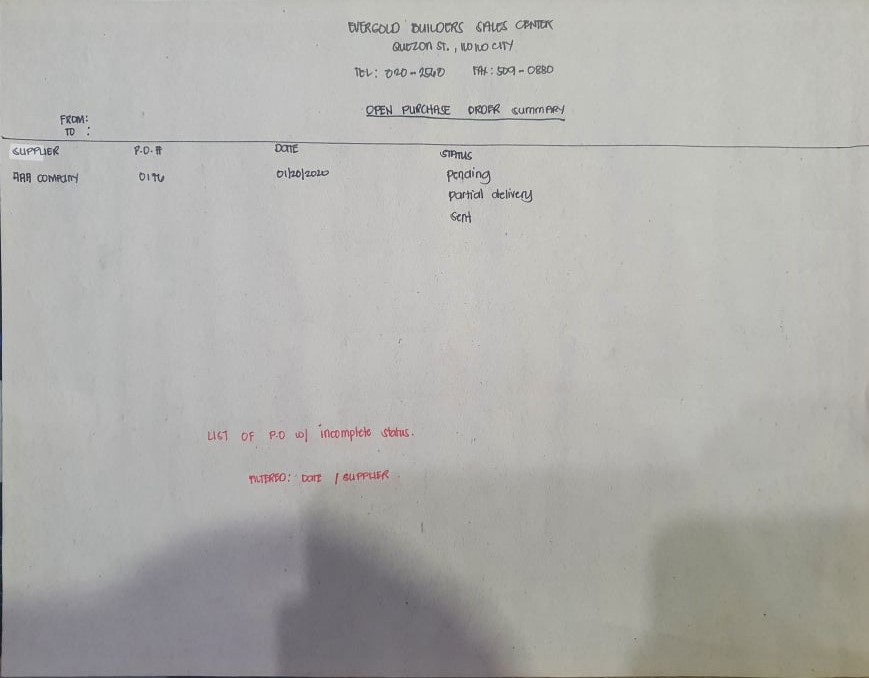 EVERGOLD BUILDERS SALES CENTER
QUEZON ST., ILOILO CITY
TEL: 020-2540 FAX: 509-0880
OPEN PURCHASE ORDER SUMMARY
FROM:
TO :
SUPPLIER P.O.# DATE STATUS
AAA COMPANY 0196 01/20/2020 Pending
Partial delivery
Sent
LIST OF P.O w/ incomplete status.
FILTERED: DATE / SUPPLIER